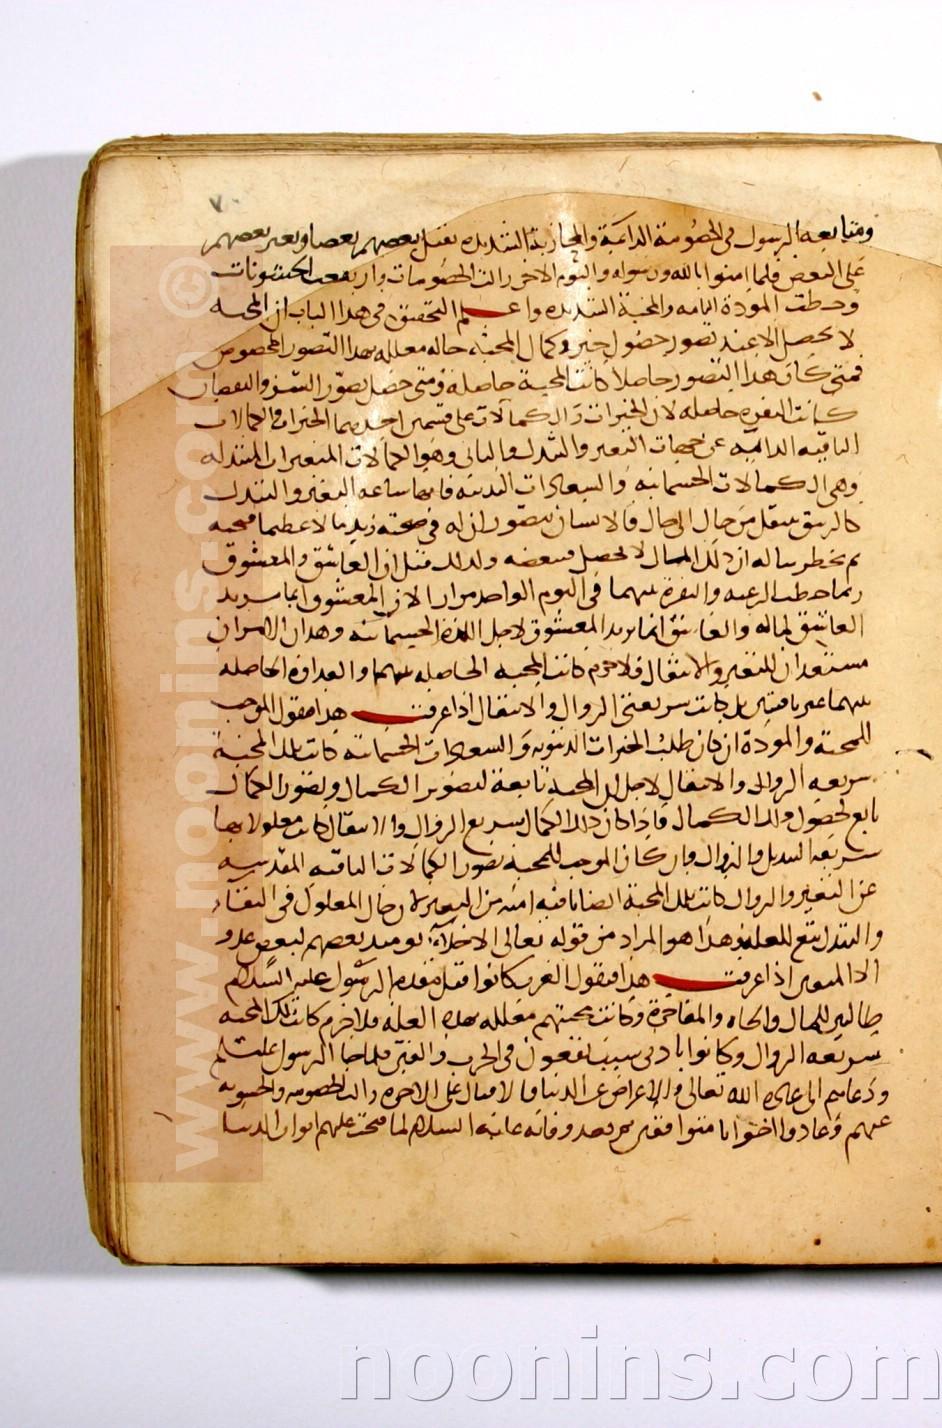 ٧٠
ومتابعة الرسول في الخصومة الدائمة والمحاربة الشديدة يقتل بعضهم بعضا ويغير بعضهم
على البعض فلما امنوا بالله ورسوله واليوم الاخر زالت الخصومات وارتفعت الخشونات
وحصلت المودة التامه والمحبة الشديده واعلم ان التحقيق في هذا الباب ان المحبه
لا تحصل الا عند تصور حصول خير وكمال المحبة حاله معلله بهذا التصور المخصوص
فمتى كان هذا التصور حاصلا كانت المحبة حاصلة ومتى حصل تصور الشر والنقصان
كانت النفره حاصله لان الخيرات والكمالات على قسمين احدهما الخيرات والكمالات
الباقيه الدائمه عن جهات التغير والتبدل والثاني وهو الكمالات المتغيرات المتبدله
وهي الكمالات الجسمانيه والسعادات البدنيه فانها سريعة التغير والتبدل
كالزيبق ينتقل من حال الى حال فالانسان يتصور ان له في صحبة زيد مالا عظيما فيحبه
ثم يخطر بباله ان ذلك المال لا يحصل فيبغضه ولذلك قيل ان العاشق والمعشوق
ربما حصلت الرغبه والنفرة بينهما في اليوم الواحد مرارا لان المعشوق انما يريد
العاشق لماله والعاشق انما يريد المعشوق لاجل اللذة الجسمانيه وهذان الامران
مستعدان للتغير والانتقال فلا جرم كانت المحبة الحاصله بينهما والعداوة الحاصله
بينهما غير باقيتين بل كانت سريعتي الزوال والانتقال اذا عرفت هذا فنقول الموجب
للمحبة والمودة ان كان طلب الخيرات الدنيويه والسعادات الجسمانيه كانت تلك المحبة
سريعه الزوال والانتقال لاجل ان المحبة تابعة لتصور الكمال وتصور الكمال
تابع لحصول ذلك الكمال فاذا كان ذلك الكمال سريع الزوال والانتقال كانت معلولاتها
سريعه التبديل والزوال وان كان الموجب للمحبة تصور الكمالات الباقيه المقدسه
عن التغير والزوال كانت تلك المحبة ايضا باقيه امنه من التغير لان حال المعلول في البقاء
والتبدل تبع للعلة وهذا هو المراد من قوله تعالى الاخلاء يومئذ بعضهم لبعض عدو
الا المتقين اذا عرفت هذا فنقول العرب كانوا قبل مقدم الرسول عليه السلام
طالبين للمال والجاه والمفاخرة وكانت محبتهم معلله بهذه العله فلا جرم كانت تلك المحبه
سريعه الزوال وكانوا بادنى سبب يقعون في الحرب والفتن فلما جا الرسول عليه السلم
ودعاهم الى عبادة الله تعالى والاعراض عن الدنيا والاقبال على الاخره زالت الخصومه والخشونه
عنهم وعادوا اخوانا متوافقين ثم بعد وفاته عليه السلام لما فتحت عليهم ابواب الدنيا
© www.noonins.com
noonins.com